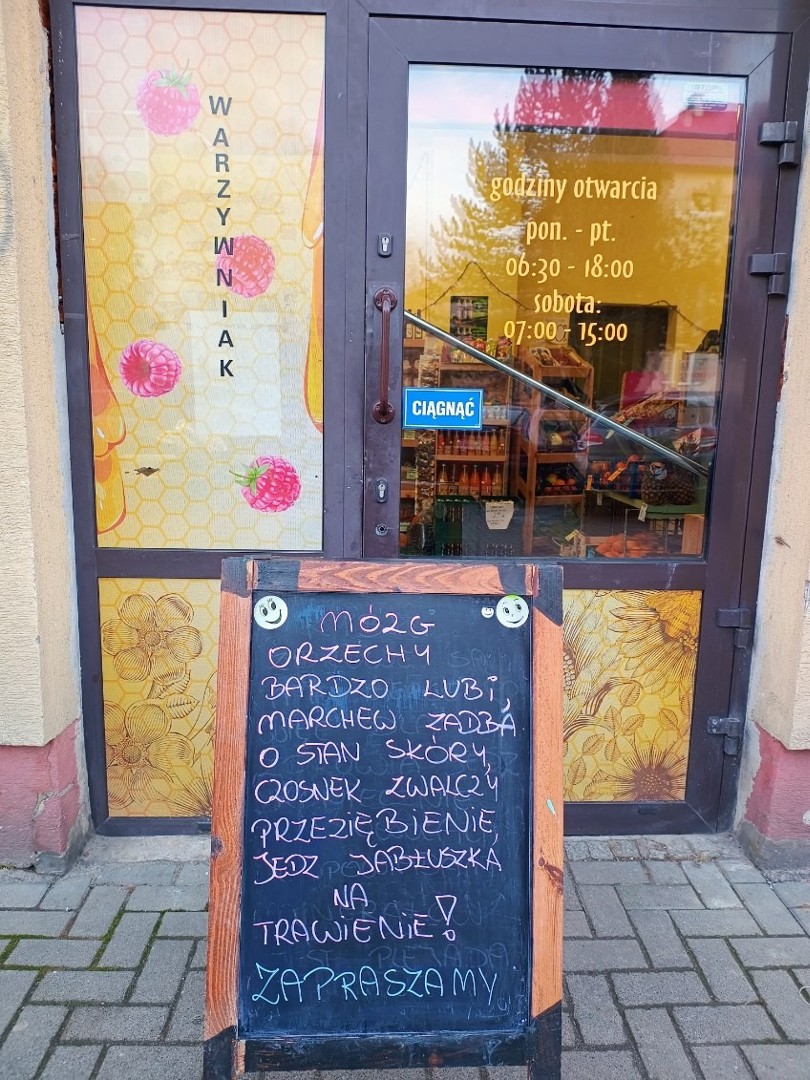 WARZYWNIAK
godziny otwarcia
pon. - pt.
06:30 - 18:00
sobota:
07:00 - 15:00
CIĄGNĄĆ
MÓZG
ORZECHY
BARDZO LUBI,
MARCHEW ZADBA
O STAN SKÓRY,
CZOSNEK ZWALCZY
PRZEZIĘBIENIE,
JEDZ JABŁUSZKA
NA
TRAWIENIE!
ZAPRASZAMY